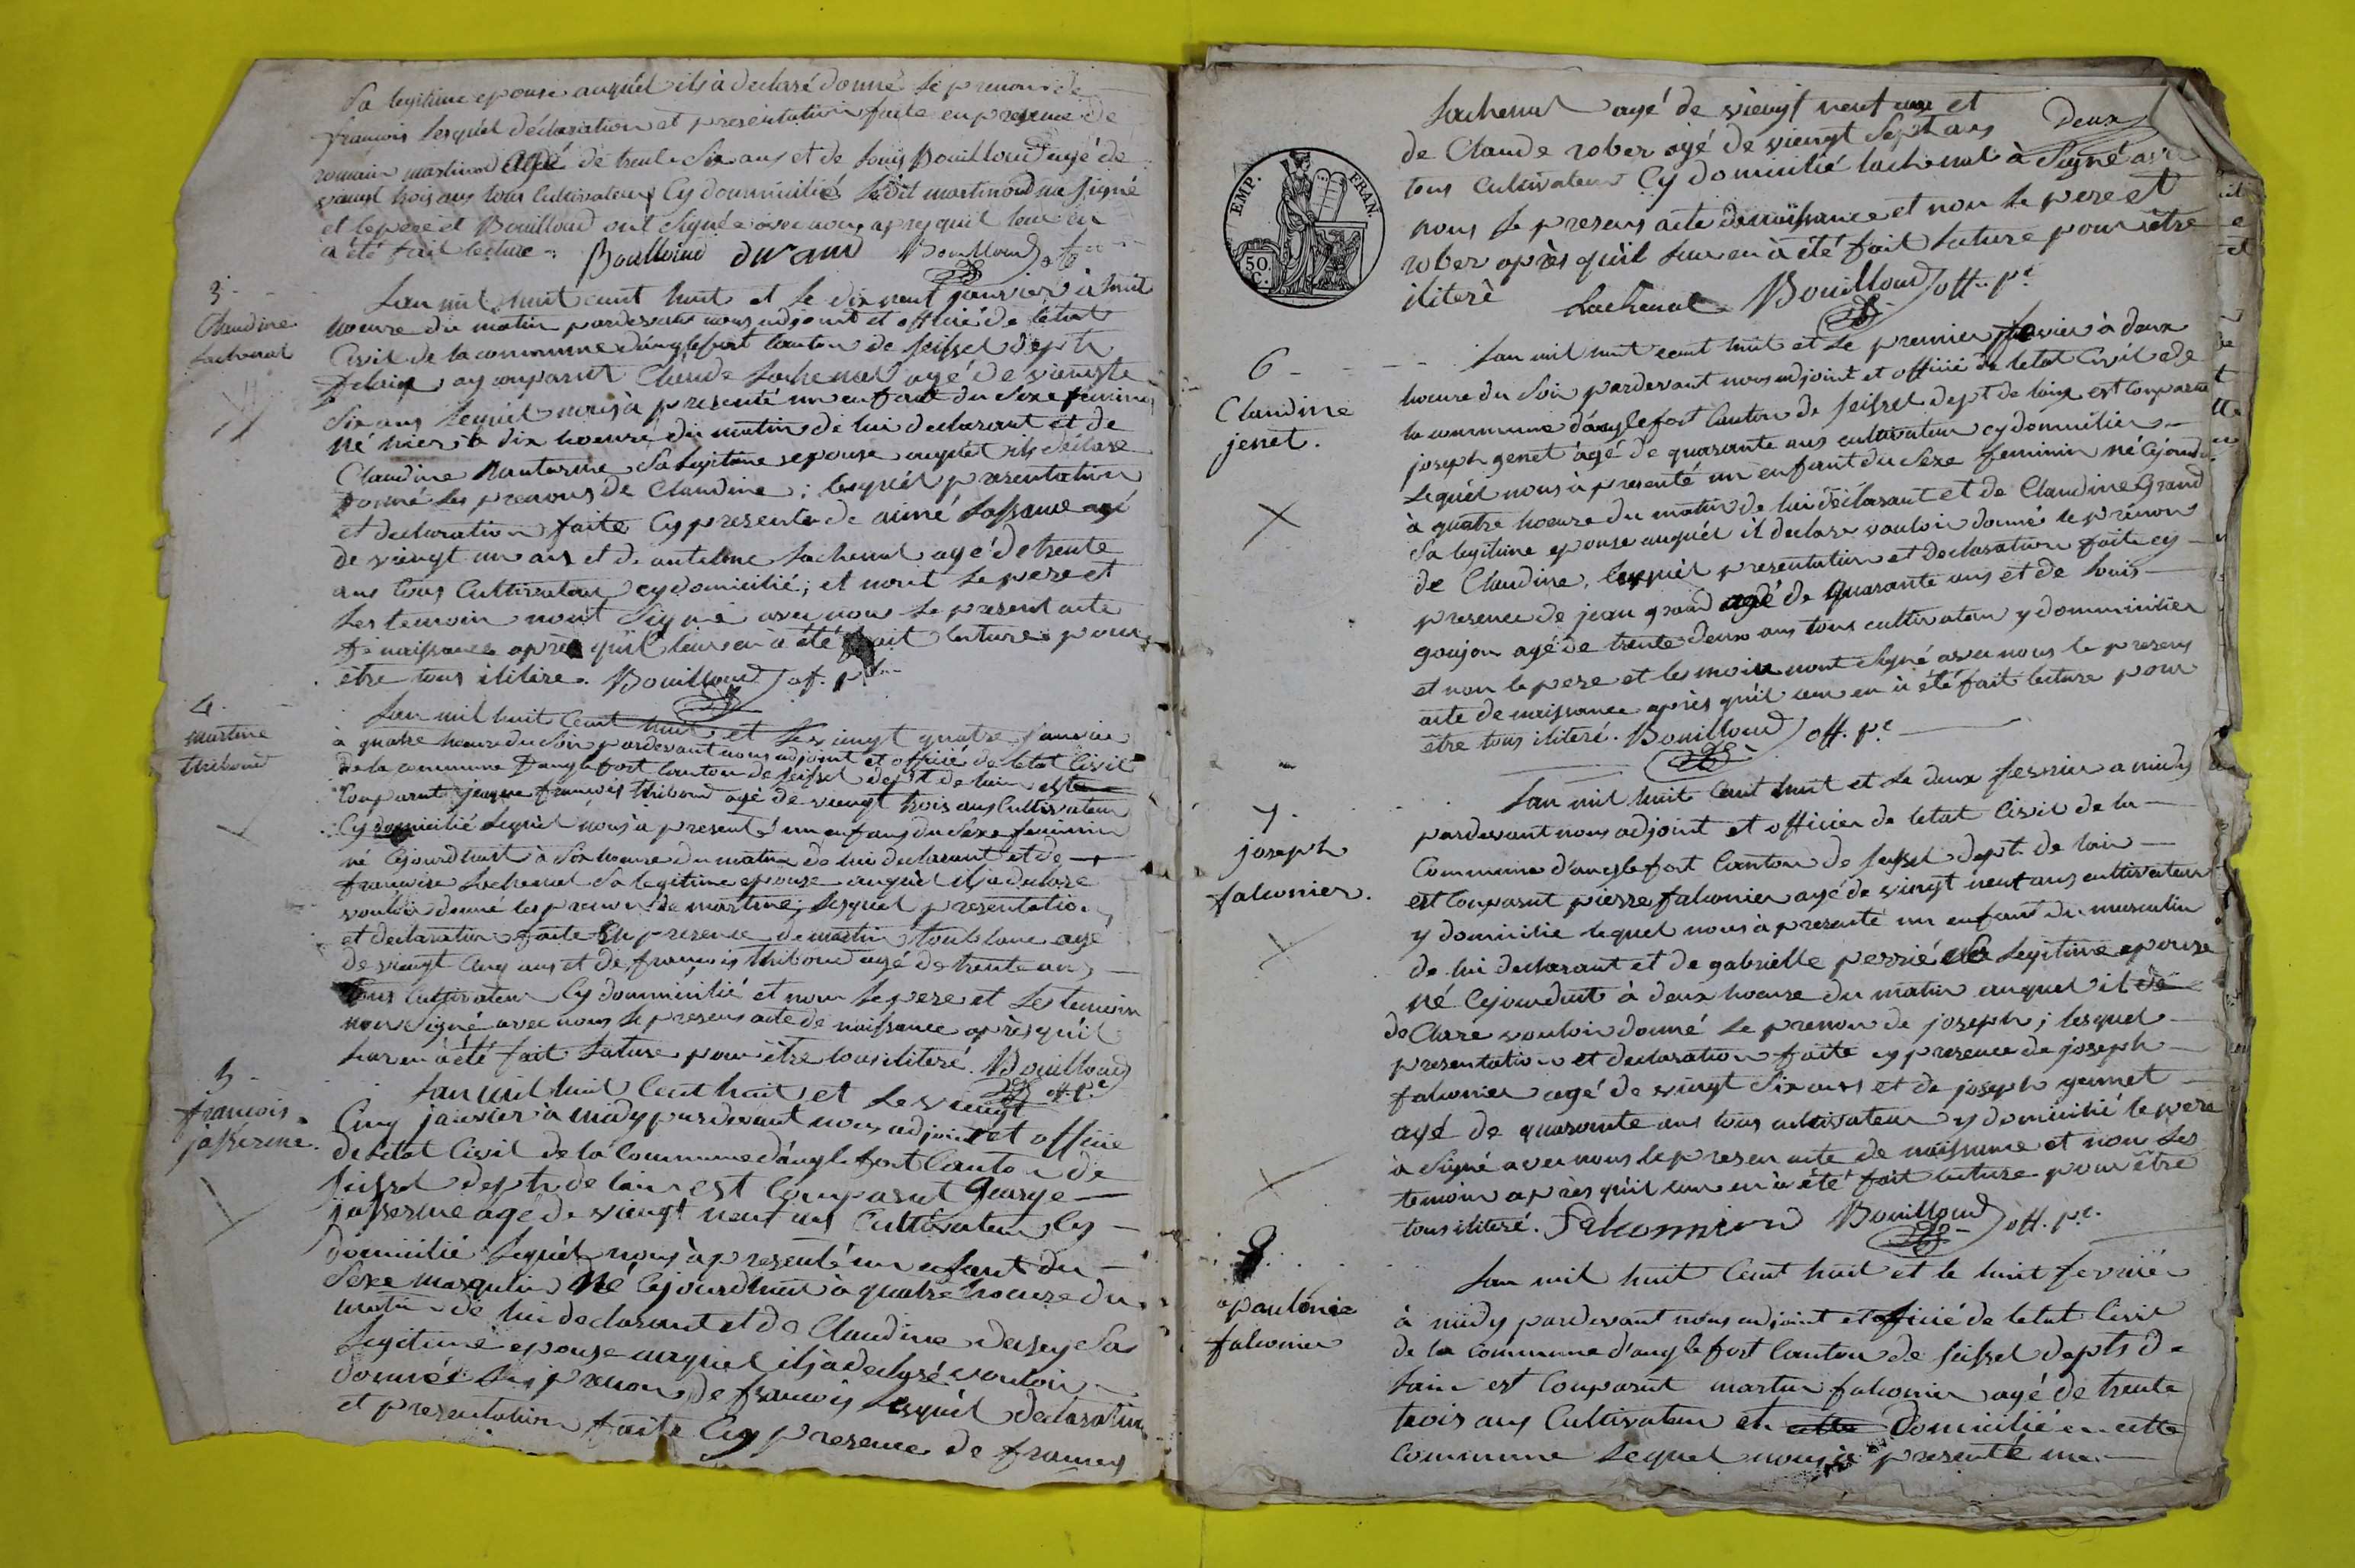 Sa legitime epouse auquél ils à declaré donné le prenom de
francois lesquél déclaration et presentation faite en presence de
romain martinod agé de trente Six ans et de louis Bouilloud agé de
vaingt trois ans tous Cultivateur Cy domicilié ledit martinod ne signé
et le pere et Bouilloud ont Signé avec nous apres quil leur en
a été fait lecture
Bouilloud durand Bouilloud
3
Claudine
Lachenal
Lan mil huit cent huit et le dix neuf janvier à huit
hoeure du matin pardevant nous adjoint et officié de létat
Civil de la commune danglefort Canton de seissel dept
de lain ay comparut Claude Lachenal agé de viengte
Six ans lequél nous à presenté un enfant du Sexe féminin
né hier à dix hoeure du matin de lui declarant et de
Claudine Sa legitime epouse auquél ils declare
donné les prenoms de Claudine ; lesquél presentation
et declaration faite Cy presente de aimé agé
de viengt un ans et de antelme Lachenal agé de trente
ans tous Cultivateur cy domicilié ; et nont le pere et
les temoin nont Signé avec nous le present acte
de naissance après quil leur en à été fait lecture pour
être tous ilitéré. Bouilloud of. pc
4.
martine
thiboud
Lan mil huit Cent huit et le viengt quatre janvier
à quatre hoeure du Soir pardevant nous adjoint et officié de letat Civil
de la commune danglefort Canton de seissel dept de lain est
Comparut francois thiboud agé de viengt trois ans Cultivateur
Cy domicilié lequél nous à presenté un enfans du Sexe feminin
né Cejourdhuit à Six hoeure du matin de lui declarant et de
francoise Lachenal Sa legitime epouse auquél il à declaré
vouloir donné les prenom de martine; lesquel presentation
et declaration faite En presence de martin agé
de viengt Cinq ans et de francois thiboud agé de trente ans
tous Cultivateur Cy domminilié et nom le pere et les temoin
non Signé avec nous le presens acte de naissance après quil
leur en à été fait lature pour être tous iliteré. Bouilloud
off. pc
5
francois
josserme
Lan mil huit Cent huit et le viengt
Cinq janvier à midy pardevant nous adjoint et officié
de létat Civil de la Commune danglefort Canton de
seissel dept de lain est Comparut George
josserme agé de viengt neuf ans Cultivateur Cy
domicilié lequél nous à presenté un enfant du
Sexe masqulin Né Cejourdhuit à quatre hoeure du
matin de lui declarant et de Claudine Sa
legitime epouse auquel ils à declaré vouloir
donné les prenom de francois lesquél declaration
et presentation faite Cy presence de francois
Deux
EMP. FRAN.
50. C.
Lachenal agé de viengt neuf ans et
de Claude rober agé de viengt Sept ans
tous Cultivateur Cy domicilié lachenal à Signé avec
nous le presens acte de naissance et non le pere et
rober après quil leur en à été fait lature pour être
iliteré Lachenal Bouilloud off. pc
6
Claudine
jenet.
Lan mil huit cent huit et le premier fevrier à deux
hoeure du Soir pardevant nous adjoint et officié de letat Civil de
la commune d'anglefort Canton de seissel dept de lain est comparut
joseph genet agé de quarante ans cultivateur cy domicilier
lequél nous à presenté un enfant du Sexe feminin né Cejourd
à quatre hoeure du matin de lui déclarant et de Claudine Grand
Sa legitime epouse auquél il declare vouloir donné le prénom
de Claudine, lesquél presentation et declaration faite cy
presence de jean grand agé de quarante ans et de louis
goujon agé de trente deux ans tous cultivateur y domminilier
et non le pere et temoin nont Signé avec nous le presens
acte de naissance après quil leur en à été fait lecture pour
être tous iliteré. Bouilloud off. pc
7.
joseph
falconier.
Lan mil huit Cent huit et le deux fevrier a midy
pardevant nous adjoint et officier de letat Civil de la
Commune d'anglefort Canton de seissel dept. de lain
est Comparut pierre falconier agé de vingt neuf ans cultivateur
y domicilié lequel nous à presenté un enfant du masculin
de lui declarant et de gabrielle perrié Sa legitime epouse
né Cejourduit à deux hoeure du matin auquel il de
de Clare vouloir donné le prenom de joseph ; lesquel
presentation et declaration faite cy presence de joseph
falconier agé de vingt Six ans et de joseph gennet
agé de quarante ans tous cultivateur y domicilié le pere
à Signé avec nous le presen acte de naissance et non les
temoin après quil leur en à été fait lecture pour être
tous iliteré. Falconnier Bouilloud off. pc.
8.
apaulonie
falconier
Lan mil huit Cent huit et le huit fevrier
à midy pardevant nous adjoint et officié de letat Civil
de la Commune d'anglefort Canton de seissel depts de
lain est Comparut martin falconier agé de trente
trois ans Cultivateur et cette Domicilié en cette
Commune lequel nous à presenté un